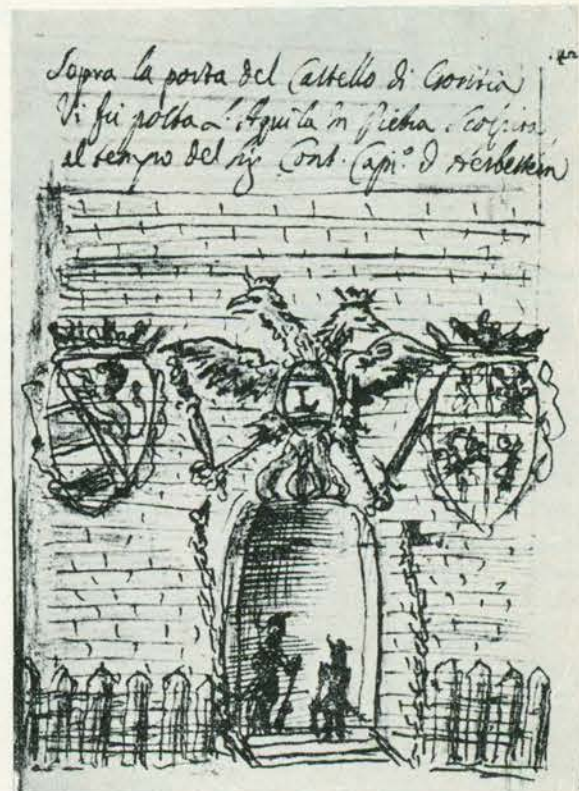 Sopra la porta del Castello di Goritia
Vi fu posta L'Aquila in Pietra Scolpita
al tempo del Sig Cont. Capi.º d Herbestein